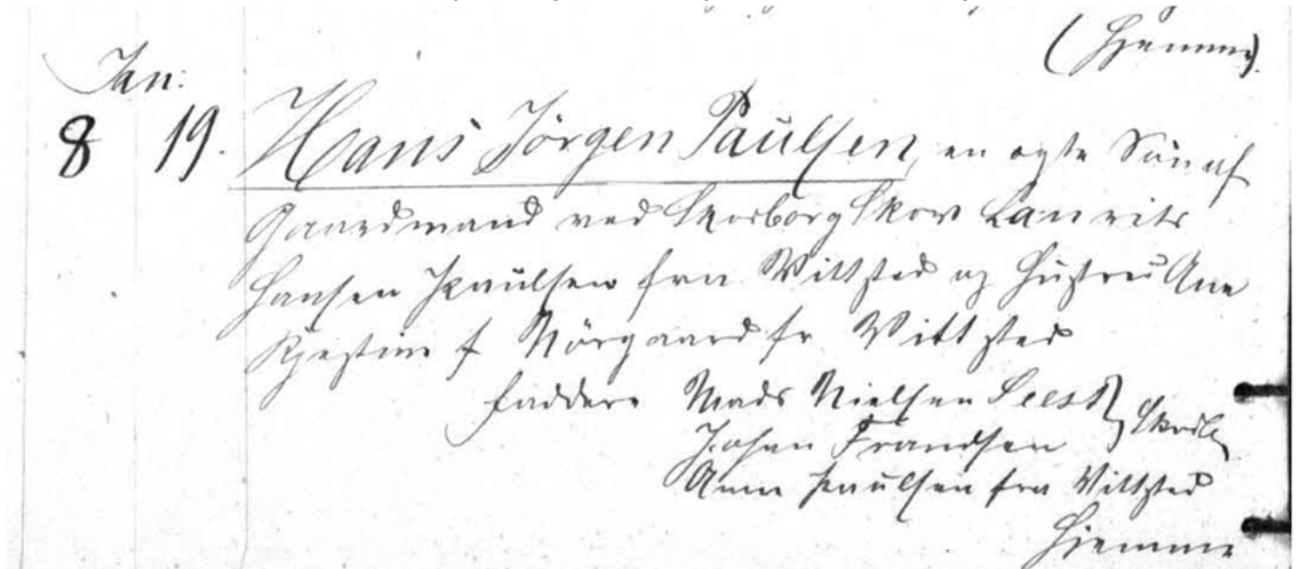 (Hjemme).
Jan:
8 19. Hans Jörgen Paulsen, en ægte Sön af
Gaardmand ved Skodborg Skov Laurits
Hansen Paulsen fra Vittsted og Hustru Ane
Kjestine f Nörgaard fr Vittsted
Faddere Mads Nielsen Seest
Johan Frandsen
Anne Paulsen fra Vittsted
Hjemme